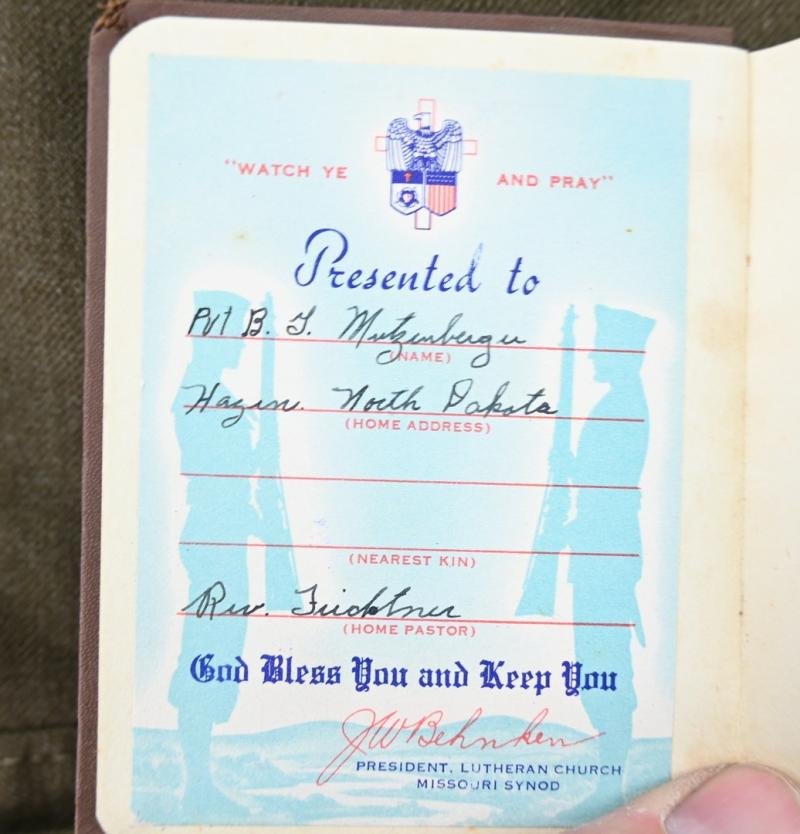 "WATCH YE AND PRAY"
Presented to
Pvt B. F. Mutzenberger
(NAME)
Hazen. North Dakota
(HOME ADDRESS)
(NEAREST KIN)
Rev.
(HOME PASTOR)
God Bless You and Keep You
JW Behnken
PRESIDENT, LUTHERAN CHURCH
MISSOURI SYNOD